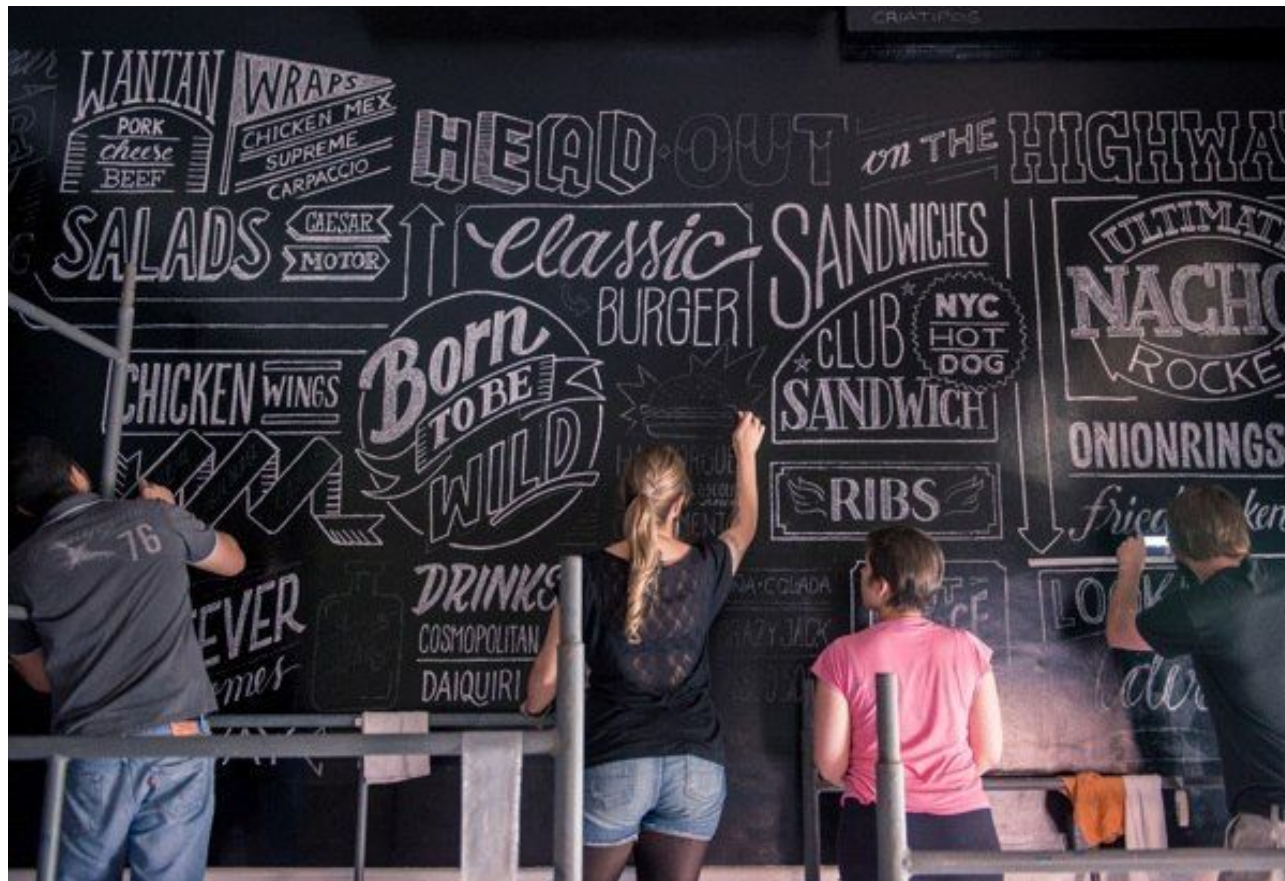 CRIATIPOS
WANTAN
PORK
cheese
BEEF
WRAPS
CHICKEN MEX
SUPREME
CARPACCIO
HEAD·OUT on THE HIGHWA
SALADS
CAESAR
MOTOR
Classic
BURGER
SANDWICHES
CLUB
SANDWICH
NYC
HOT
DOG
ULTIMAT
NACHO
ROCKE
CHICKEN WINGS
Born
TO BE
WILD
RIBS
ONIONRINGS
fried
EVER
omes
DRINKS
COSMOPOLITAN
DAIQUIRI
COLADA
JACK
LOO
76